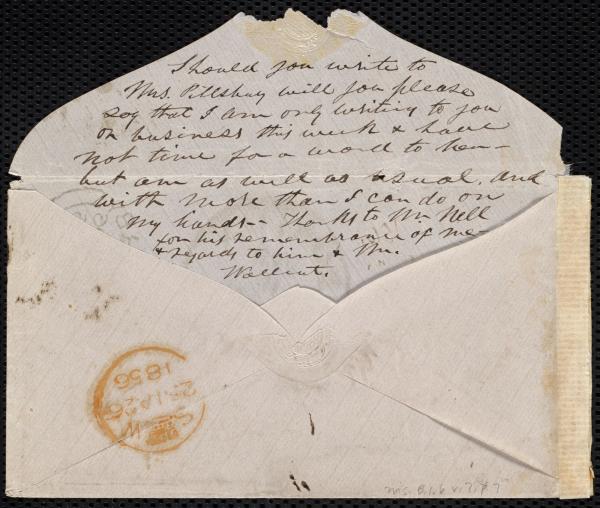 Should you write to
Mrs. Pillsbury will you please
say that I am only writing to you
on business this week & have
not time for a word to her—
but am as well as usual, and
with more than I can do on
my hands— Thanks to Mr Nell
for his remembrance of me—
& regards to him & Mr.
Wallcut.
1856